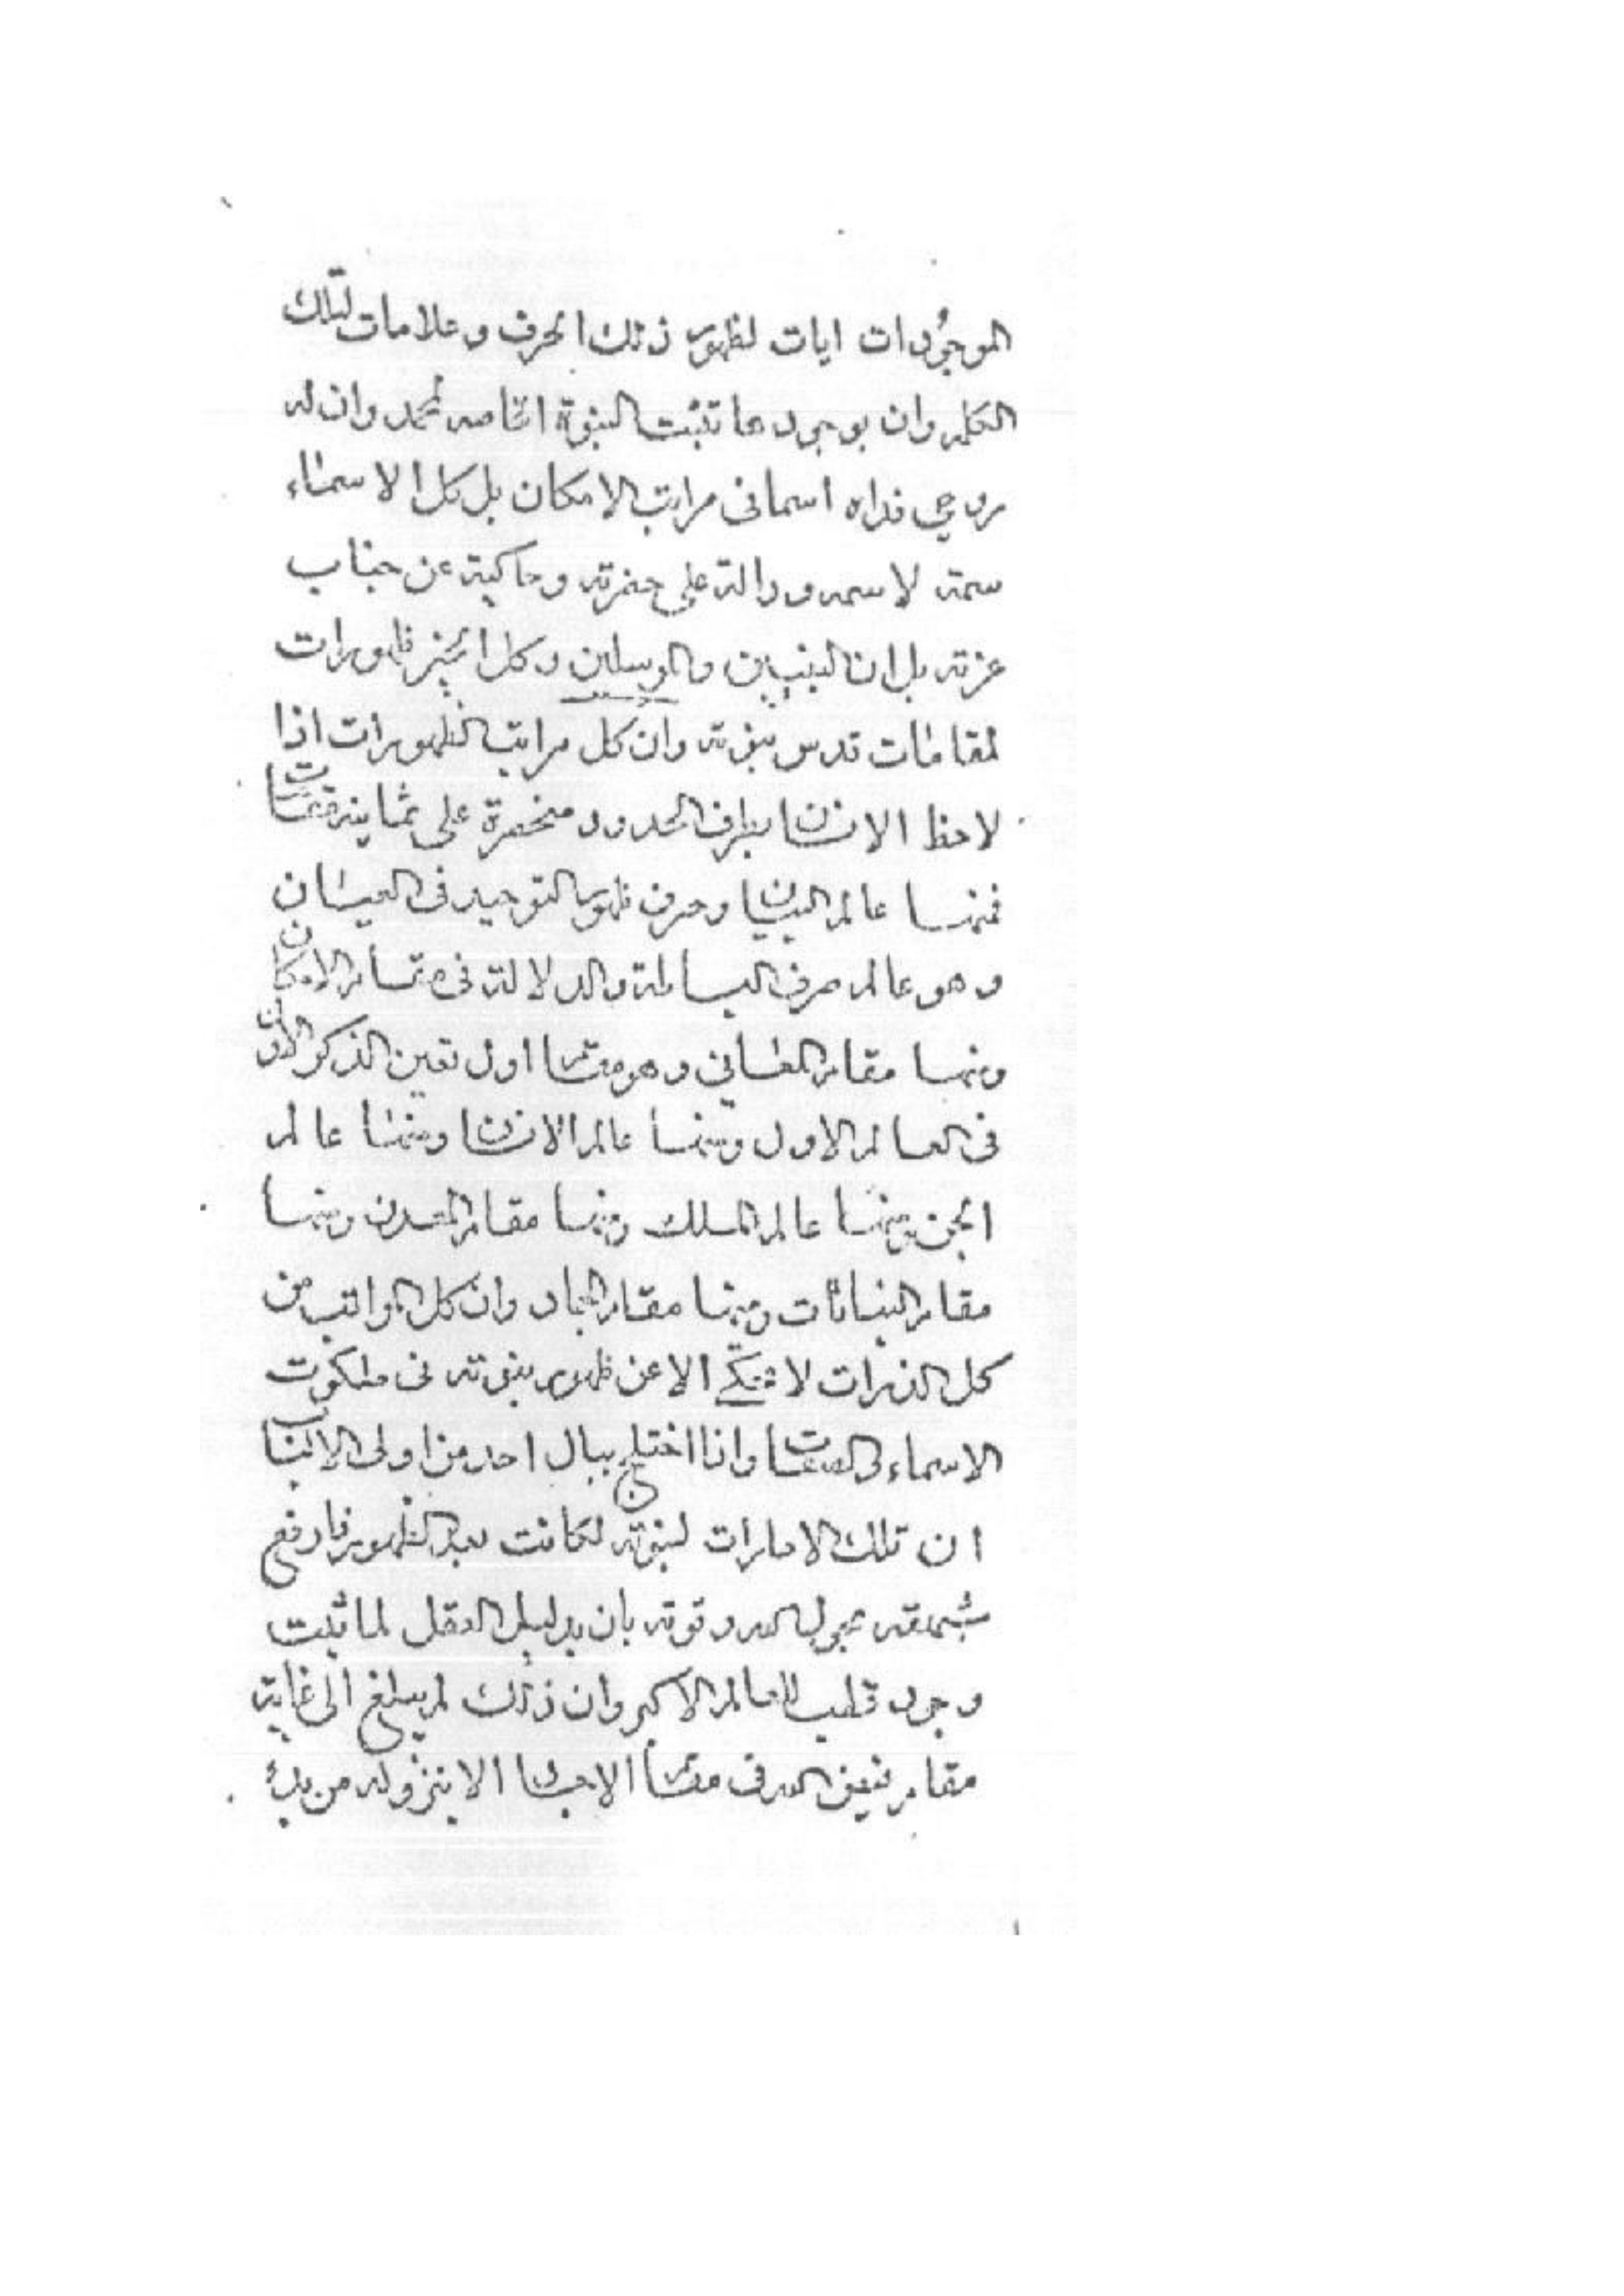 الموجودات ايات لظهور ذلك الحرف و علامات لتلك
الكلمه وان بوجودها تثبت النبوة الخاصه لمحمد وان له
روحي فداه اسما في مراتب الامكان بل كل الاسماء
سمة لاسمه و دالة على حضرته و حاكية عن جناب
عزته بل ان النبيين والمرسلين وكل الخير ظهورات
لمقامات قدس نبوته وان كل مراتب الظهورات اذا
لاحظ الانسان بطرف الحدود منحصرة على ثمانية مقامات
فمنها عالم البيان و حرف ظهور التوحيد في العيان
و هو عالم صرف البساطة والدلالة في مقام الامكان
ومنها مقام المعاني و هو مقام اول تعين الذكر الاول
في العالم الاول ومنها عالم الانسان ومنها عالم
الجن ومنها عالم الملك ومنها مقام المعدن ومنها
مقام النباتات ومنها مقام الجماد وان كل المراتب من
كل الذرات لا تحكي الا عن ظهور نبوته في ملكوت
الاسماء والصفات واذا اختلج ببال احد من اولى الالباب
ان تلك الامارات لنبوته لكانت بعد الظهور فارفع
شبهته بحول الله و قوته بان بدليل العقل لما ثبت
وجود قطب للعالم الاكبر وان ذلك لم يبلغ الى غاية
مقام فيض الله في مقام الا بنزوله من بدء